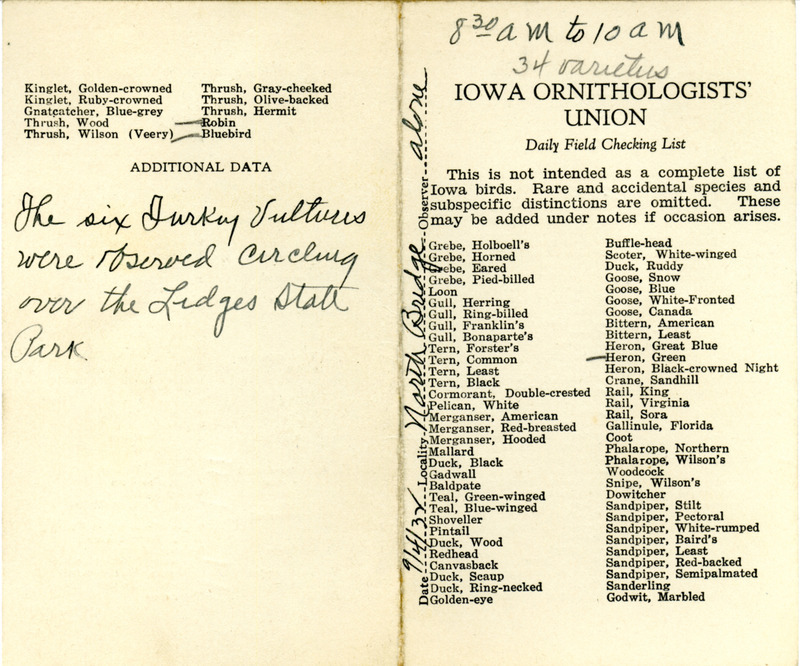 Kinglet, Golden-crowned
Kinglet, Ruby-crowned
Gnatcatcher, Blue-grey
Thrush, Wood
Thrush, Wilson (Veery)
Thrush, Gray-cheeked
Thrush, Olive-backed
Thrush, Hermit
Robin
Bluebird
ADDITIONAL DATA
The six Turkey Vultures
were observed circling
over the Ledges State
Park
8 30 a m to 10 a m
34 varietus
IOWA ORNITHOLOGISTS'
UNION
Daily Field Checking List
This is not intended as a complete list of
Iowa birds. Rare and accidental species and
subspecific distinctions are omitted. These
may be added under notes if occasion arises.
Date 9/4/32 Locality North Bridge Observer alone
Grebe, Holboell's
Grebe, Horned
Grebe, Eared
Grebe, Pied-billed
Loon
Gull, Herring
Gull, Ring-billed
Gull, Franklin's
Gull, Bonaparte's
Tern, Forster's
Tern, Common
Tern, Least
Tern, Black
Cormorant, Double-crested
Pelican, White
Merganser, American
Merganser, Red-breasted
Merganser, Hooded
Mallard
Duck, Black
Gadwall
Baldpate
Teal, Green-winged
Teal, Blue-winged
Shoveller
Pintail
Duck, Wood
Redhead
Canvasback
Duck, Scaup
Duck, Ring-necked
Golden-eye
Buffle-head
Scoter, White-winged
Duck, Ruddy
Goose, Snow
Goose, Blue
Goose, White-Fronted
Goose, Canada
Bittern, American
Bittern, Least
Heron, Great Blue
Heron, Green
Heron, Black-crowned Night
Crane, Sandhill
Rail, King
Rail, Virginia
Rail, Sora
Gallinule, Florida
Coot
Phalarope, Northern
Phalarope, Wilson's
Woodcock
Snipe, Wilson's
Dowitcher
Sandpiper, Stilt
Sandpiper, Pectoral
Sandpiper, White-rumped
Sandpiper, Baird's
Sandpiper, Least
Sandpiper, Red-backed
Sandpiper, Semipalmated
Sanderling
Godwit, Marbled